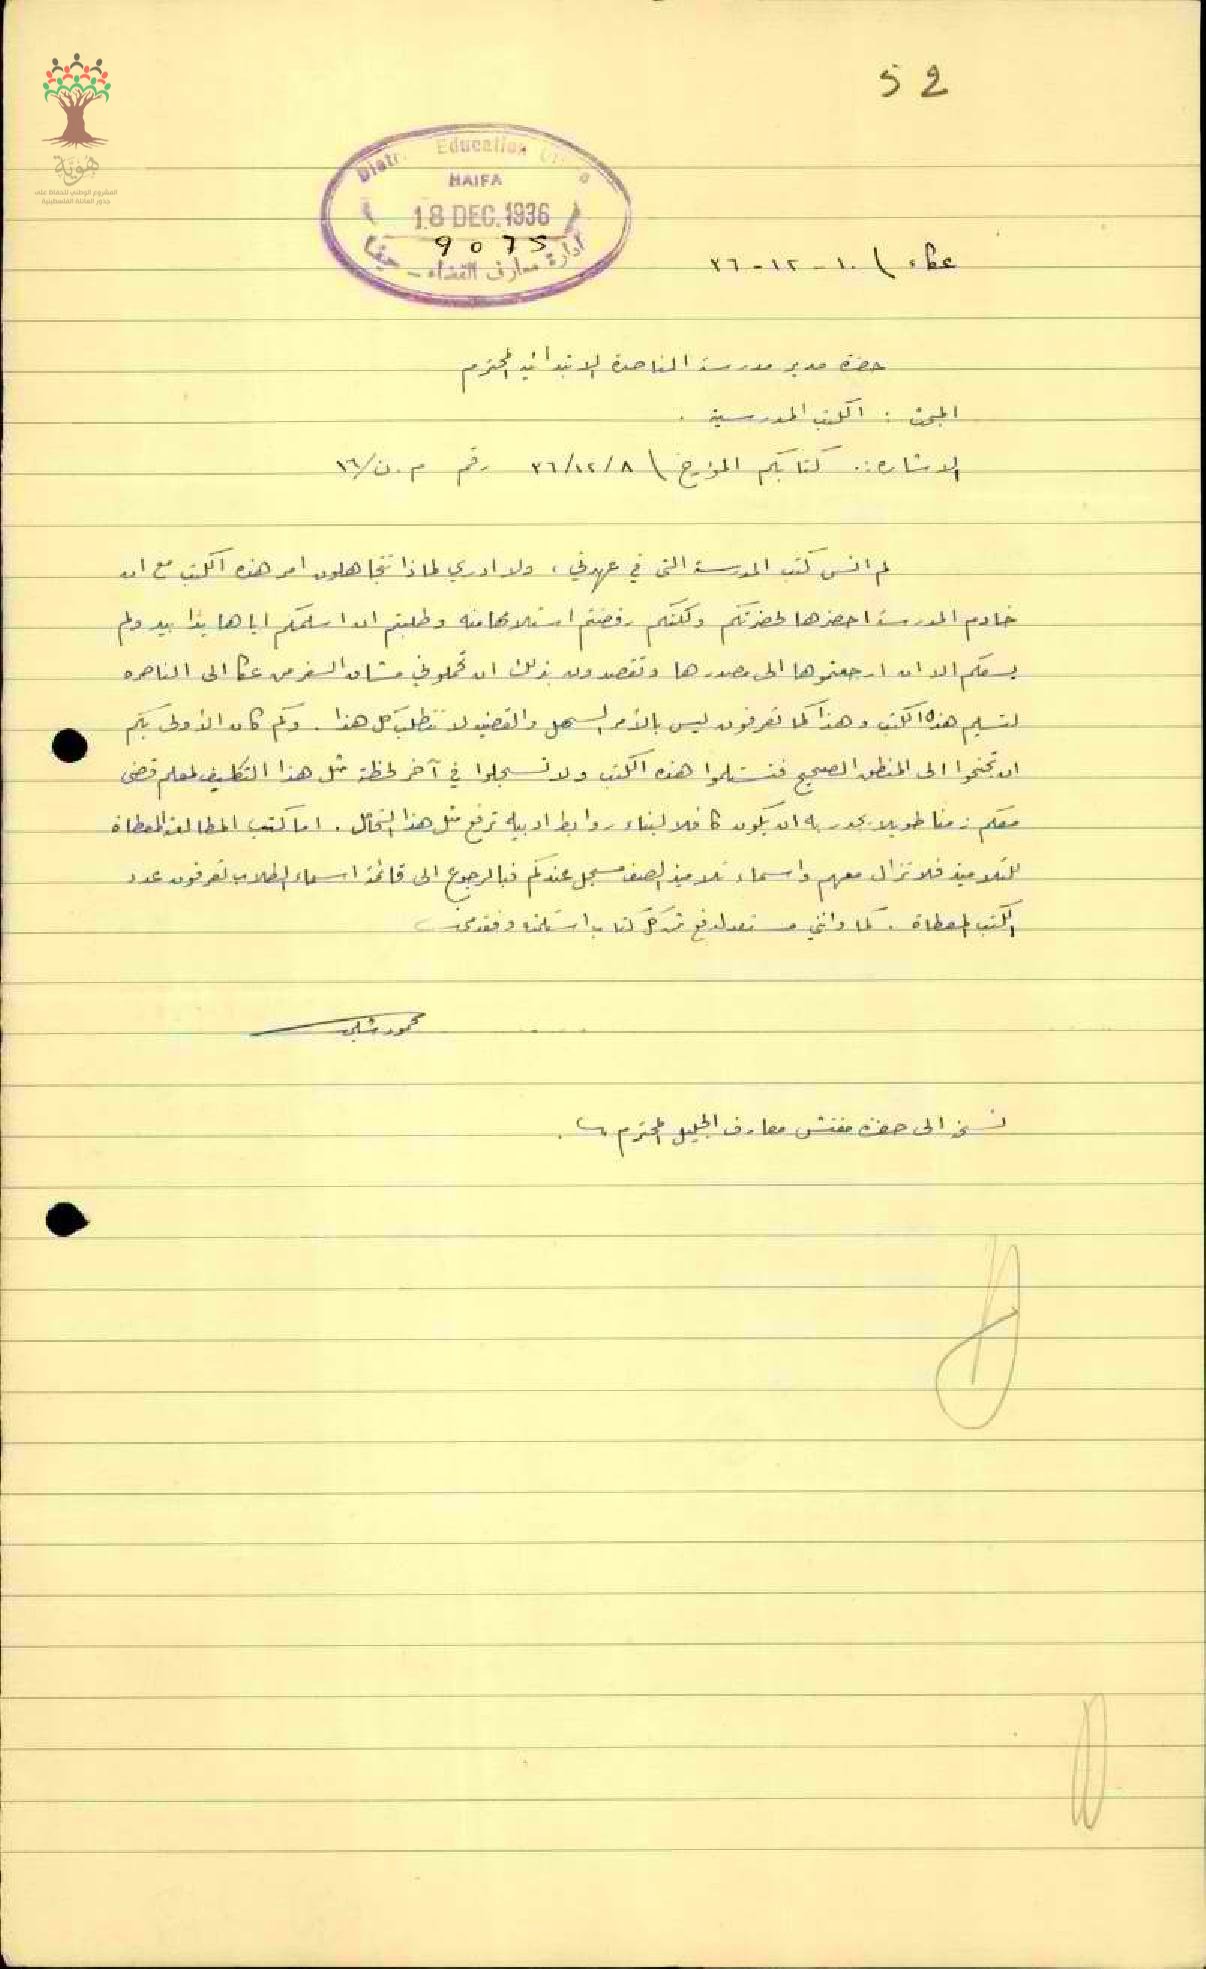 52
هوية
المشروع الوطني للحفاظ على
جذور العائلة الفلسطينية
Education
HAIFA
18 DEC. 1936
9075
ادارة معارف القضاء - حيفا
عكاء \ ١٠-١٢-٣٦
حضرة مدير مدرسة الناصرة الابتدائية المحترم
البحث : الكتب المدرسية .
الاشارة :. كتابكم المؤرخ \ ٣٦/١٢/٨ رقم م.ن/١٦
لم انس كتب المدرسة التي في عهدتي ، ولا ادري لماذا تتجاهلون امر هذه الكتب مع ان
خادم المدرسة احضرها لحضرتكم ولكنكم رفضتم استلامها منه وطلبتم ان اسلمكم اياها يدا بيد ولم
يسعكم الا ان ارجعتموها الى مصدرها وتقصدون بذلك ان تحملوني مشاق السفر من عكا الى الناصره
لتسليم هذه الكتب وهذا كما تعرفون ليس بالأمر السهل والقضية لا تتطلب كل هذا . وكم كان الأولى بكم
ان تجنحوا الى المنطق الصحيح فتستلموا هذه الكتب ولا تسجلوا في آخر لحظة مثل هذا التكليف لمعلم قضى
معكم زمنا طويلا يجدر به ان يكون كافلا لبناء روابط ادبية ترفع مثل هذا . اما كتب المطالعة المعطاة
للتلاميذ فلا تزال معهم واسماء تلاميذ الصف مسجل عندكم فبالرجوع الى قائمة اسماء الطلاب تعرفون عدد
الكتب المعطاة . كما وانني مستعد لدفع ثمن كل كتاب استلمته وفقد مني
محمود
نسخة الى حضرة مفتش معارف الجليل المحترم .